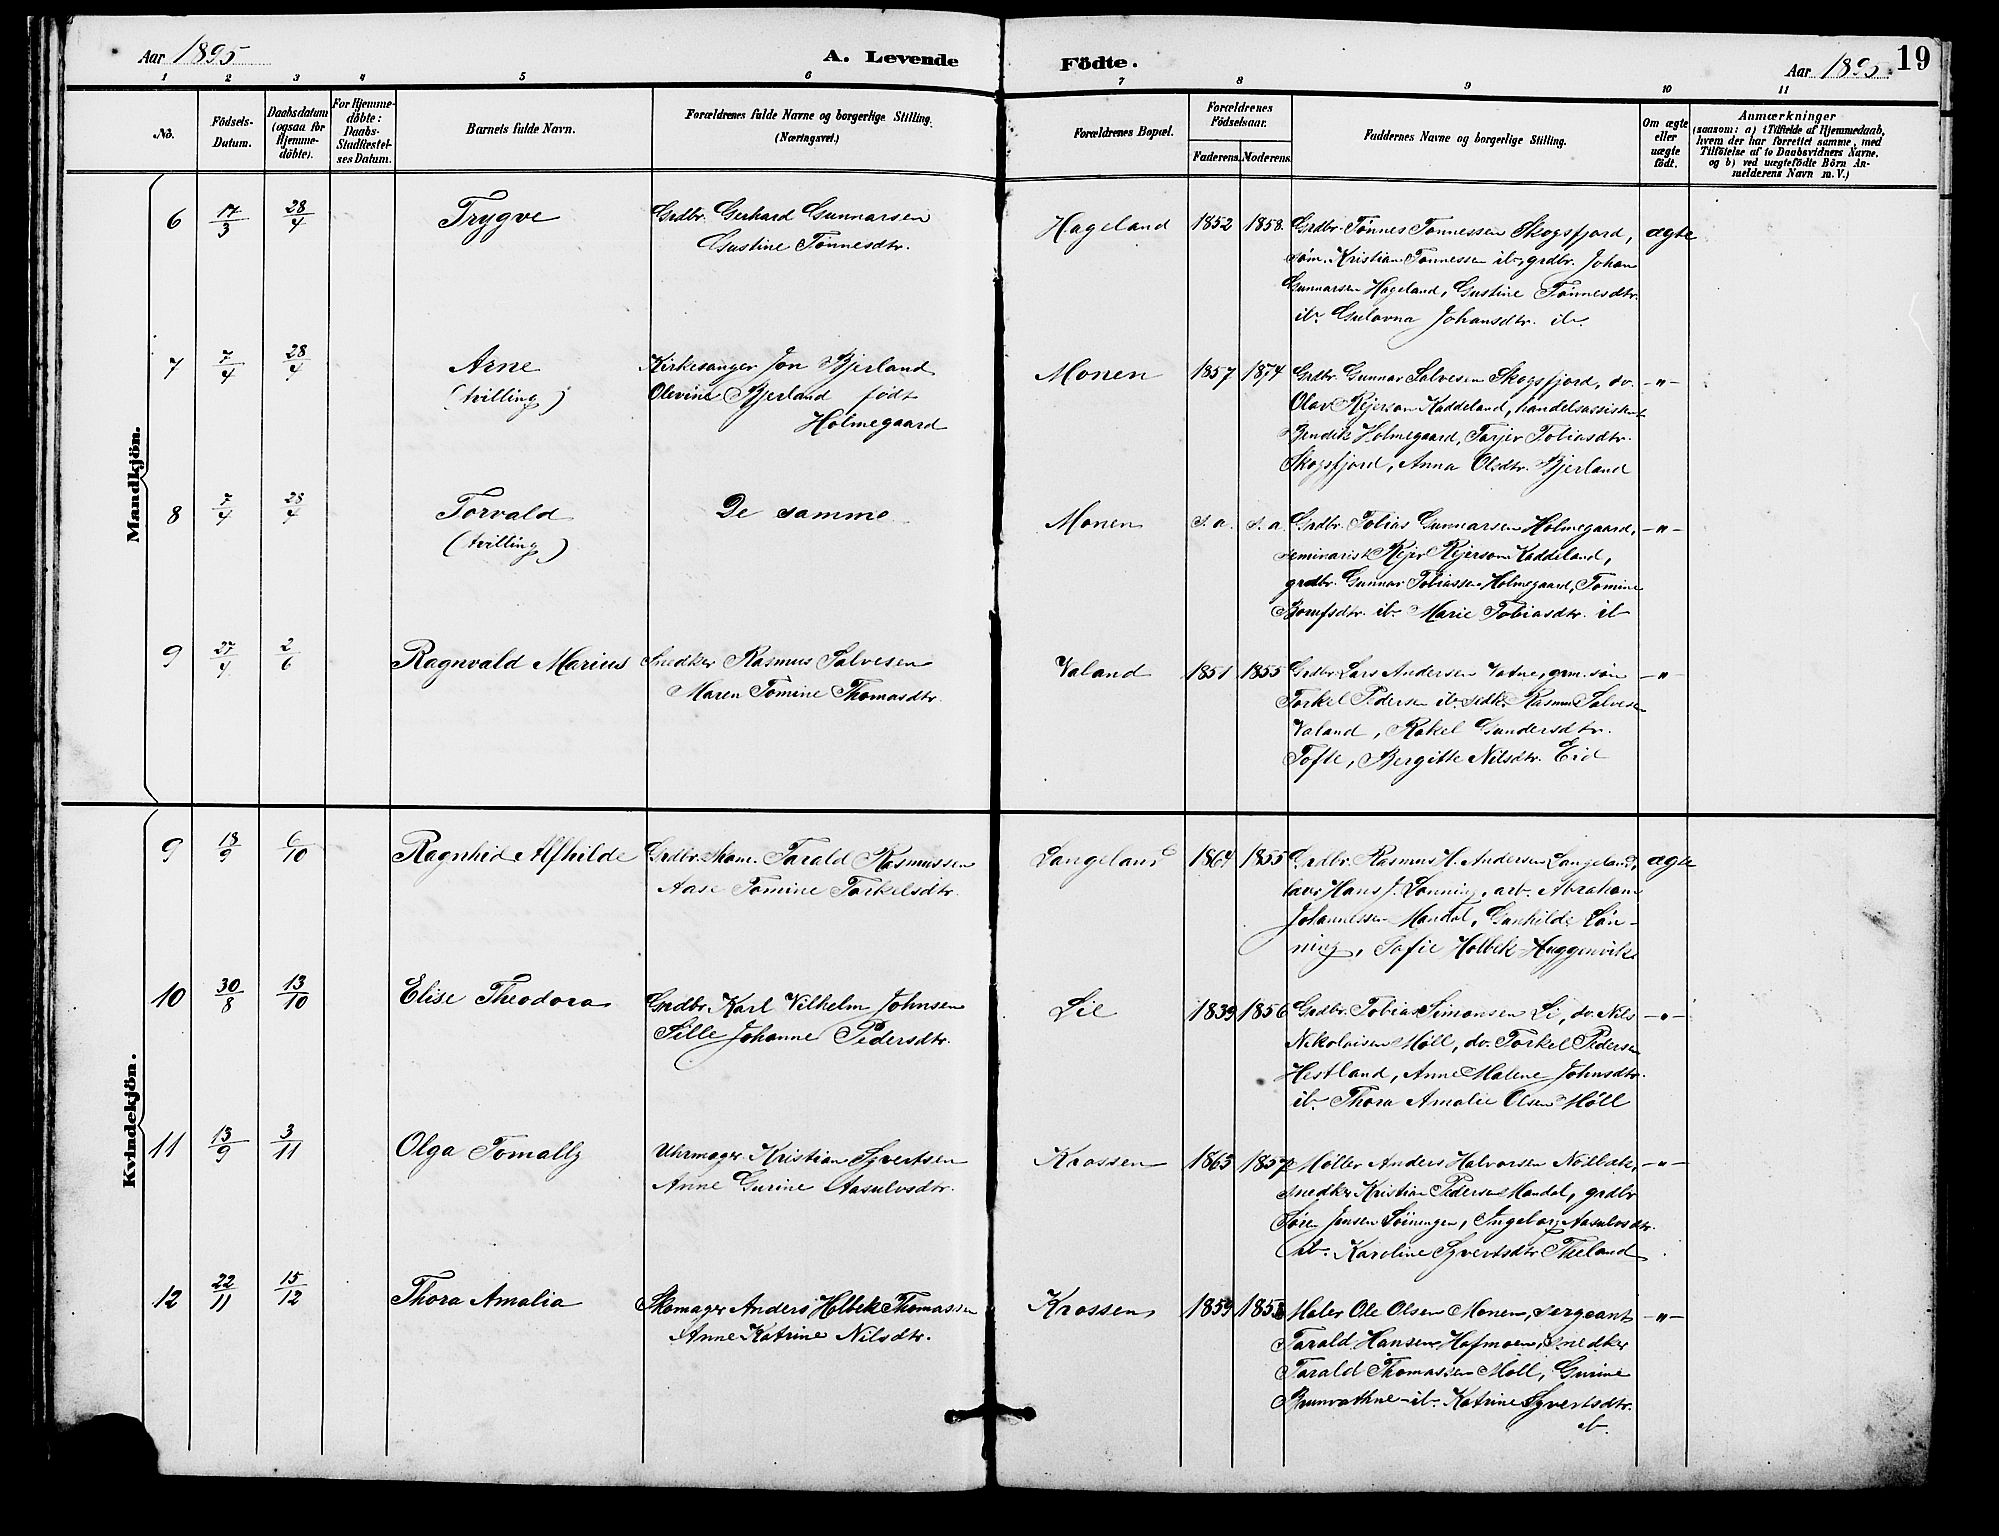 Aar 1895
A. Levende
Födte.
Aar 1895
19
1 2 3 4 5 6 7 8 9 10 11
No.
Födsels-
Datum.
Daabsdatum
(ogsaa for
Hjemme-
döbte).
For Hjemme-
döbte:
Daabs-
Stadfæstel-
ses Datum.
Barnets fulde Navn.
Forældrenes fulde Navne og borgerlige Stilling.
(Næringsvei.)
Forældrenes Bopæl.
Forældrenes
Födselsaar.
Faderens. Moderens.
Faddernes Navne og borgerlige Stilling.
Om ægte
eller
uægte
født.
Anmærkninger
(saasom: a) i Tilfælde af Hjemmedaab,
hvem der har forrettet samme, med
Tilföielse af to Daabsvidners Navne,
og b) ved uægtefödte Börn An-
melderens Navn m. V.)
Mandkjön.
6 17/3 28/4 Trygve Grdbr. Gerhard Gunnarsen Hageland 1852 1858. Grdbr. Tønnes Tønnessen Skogsfjord, ægte
Gustine Tønnesdtr. søm. Kristian Tønnessen ib., grdbr. Johan
Gunnarsen Hageland, Gustine Tønnesdtr.
ib. Gulovna Johansdtr. ib.
7 7/4 28/4 Arne Kirkesanger Jon Bjerland Monen 1857 1874 Grdbr. Gunnar Salvesen Skogsfjord, do. -"-
(tvilling) Olevine Bjerland født Olav Rejerson Kaddeland, handelsassistent
Holmegaard Bendik Holmegaard, Tarjer Tobiasdtr.
Skogsfjord, Anna Olsdtr. Bjerland
8 7/4 28/4 Torvald De samme Monen s. a. s. a. Grdbr. Tobias Gunnarsen Holmegaard, -"-
(tvilling) seminarist Rejer Rejerson Kaddeland,
grdbr. Gunnar Tobiassen Holmegaard, Tomine
ib. Marie Tobiasdtr. ib
9 27/4 2/6 Ragnvald Marius Snedker Rasmus Salvesen Valand 1851 1855 Grdbr. Lars Andersen Vatne, grm. søn -"-
Maren Tomine Thomasdtr. Torkel Pedersen ib. Rasmus Salvesen
Valand, Rakel Gundersdtr.
Tofte, Bergitte Nilsdtr. Eid
Kvindekjön.
9 18/9 6/10 Ragnhild Alfhilde Grdbr. Tarald Rasmussen Langeland 1864 1855 Grdbr. Rasmus H. Andersen Langeland, ægte
Aase Tomine Torkelsdtr. Hans J. Lønning, arb. Abraham
Johannessen Mandal, Gunhilde Løn-
ning, Sofie Holbek Huggenvik
10 30/8 13/10 Elise Theodora Grdbr. Karl Vilhelm Johnsen Lie 1839 1856 Grdbr. Tobias Simonsen Li, do. Nils -"-
Sille Johanne Pedersdtr. Nikolaisen Møll, do. Torkel Pedersen
Hestland, Anne Malene Johnsdtr.
ib. Thora Amalie Olsen Møll
11 13/9 3/11 Olga Tomally Uhrmager Kristian Syvertsen Krossen 1863 1857 Møller Anders Halvorsen Nøilbæk, -"-
Anne Gurine Aasulvsdtr. snedker Kristian Pedersen Mandal, grdbr
Søren Jensen Løiningen, Ingeborg Aasulvsdtr.
ib. Karoline Syvertsdtr. Theland
12 22/11 15/12 Thora Amalia Skomager Anders Holbek Thomassen Krossen 1859 1858 Maler Ole Olsen Monen, sergeant -"-
Anne Katrine Nilsdtr. Tarald Hansen Hofmoen, snedker
Tarald Thomassen Møll, Gurine
Brunvathne ib. Katrine Syvertsdtr.
ib.